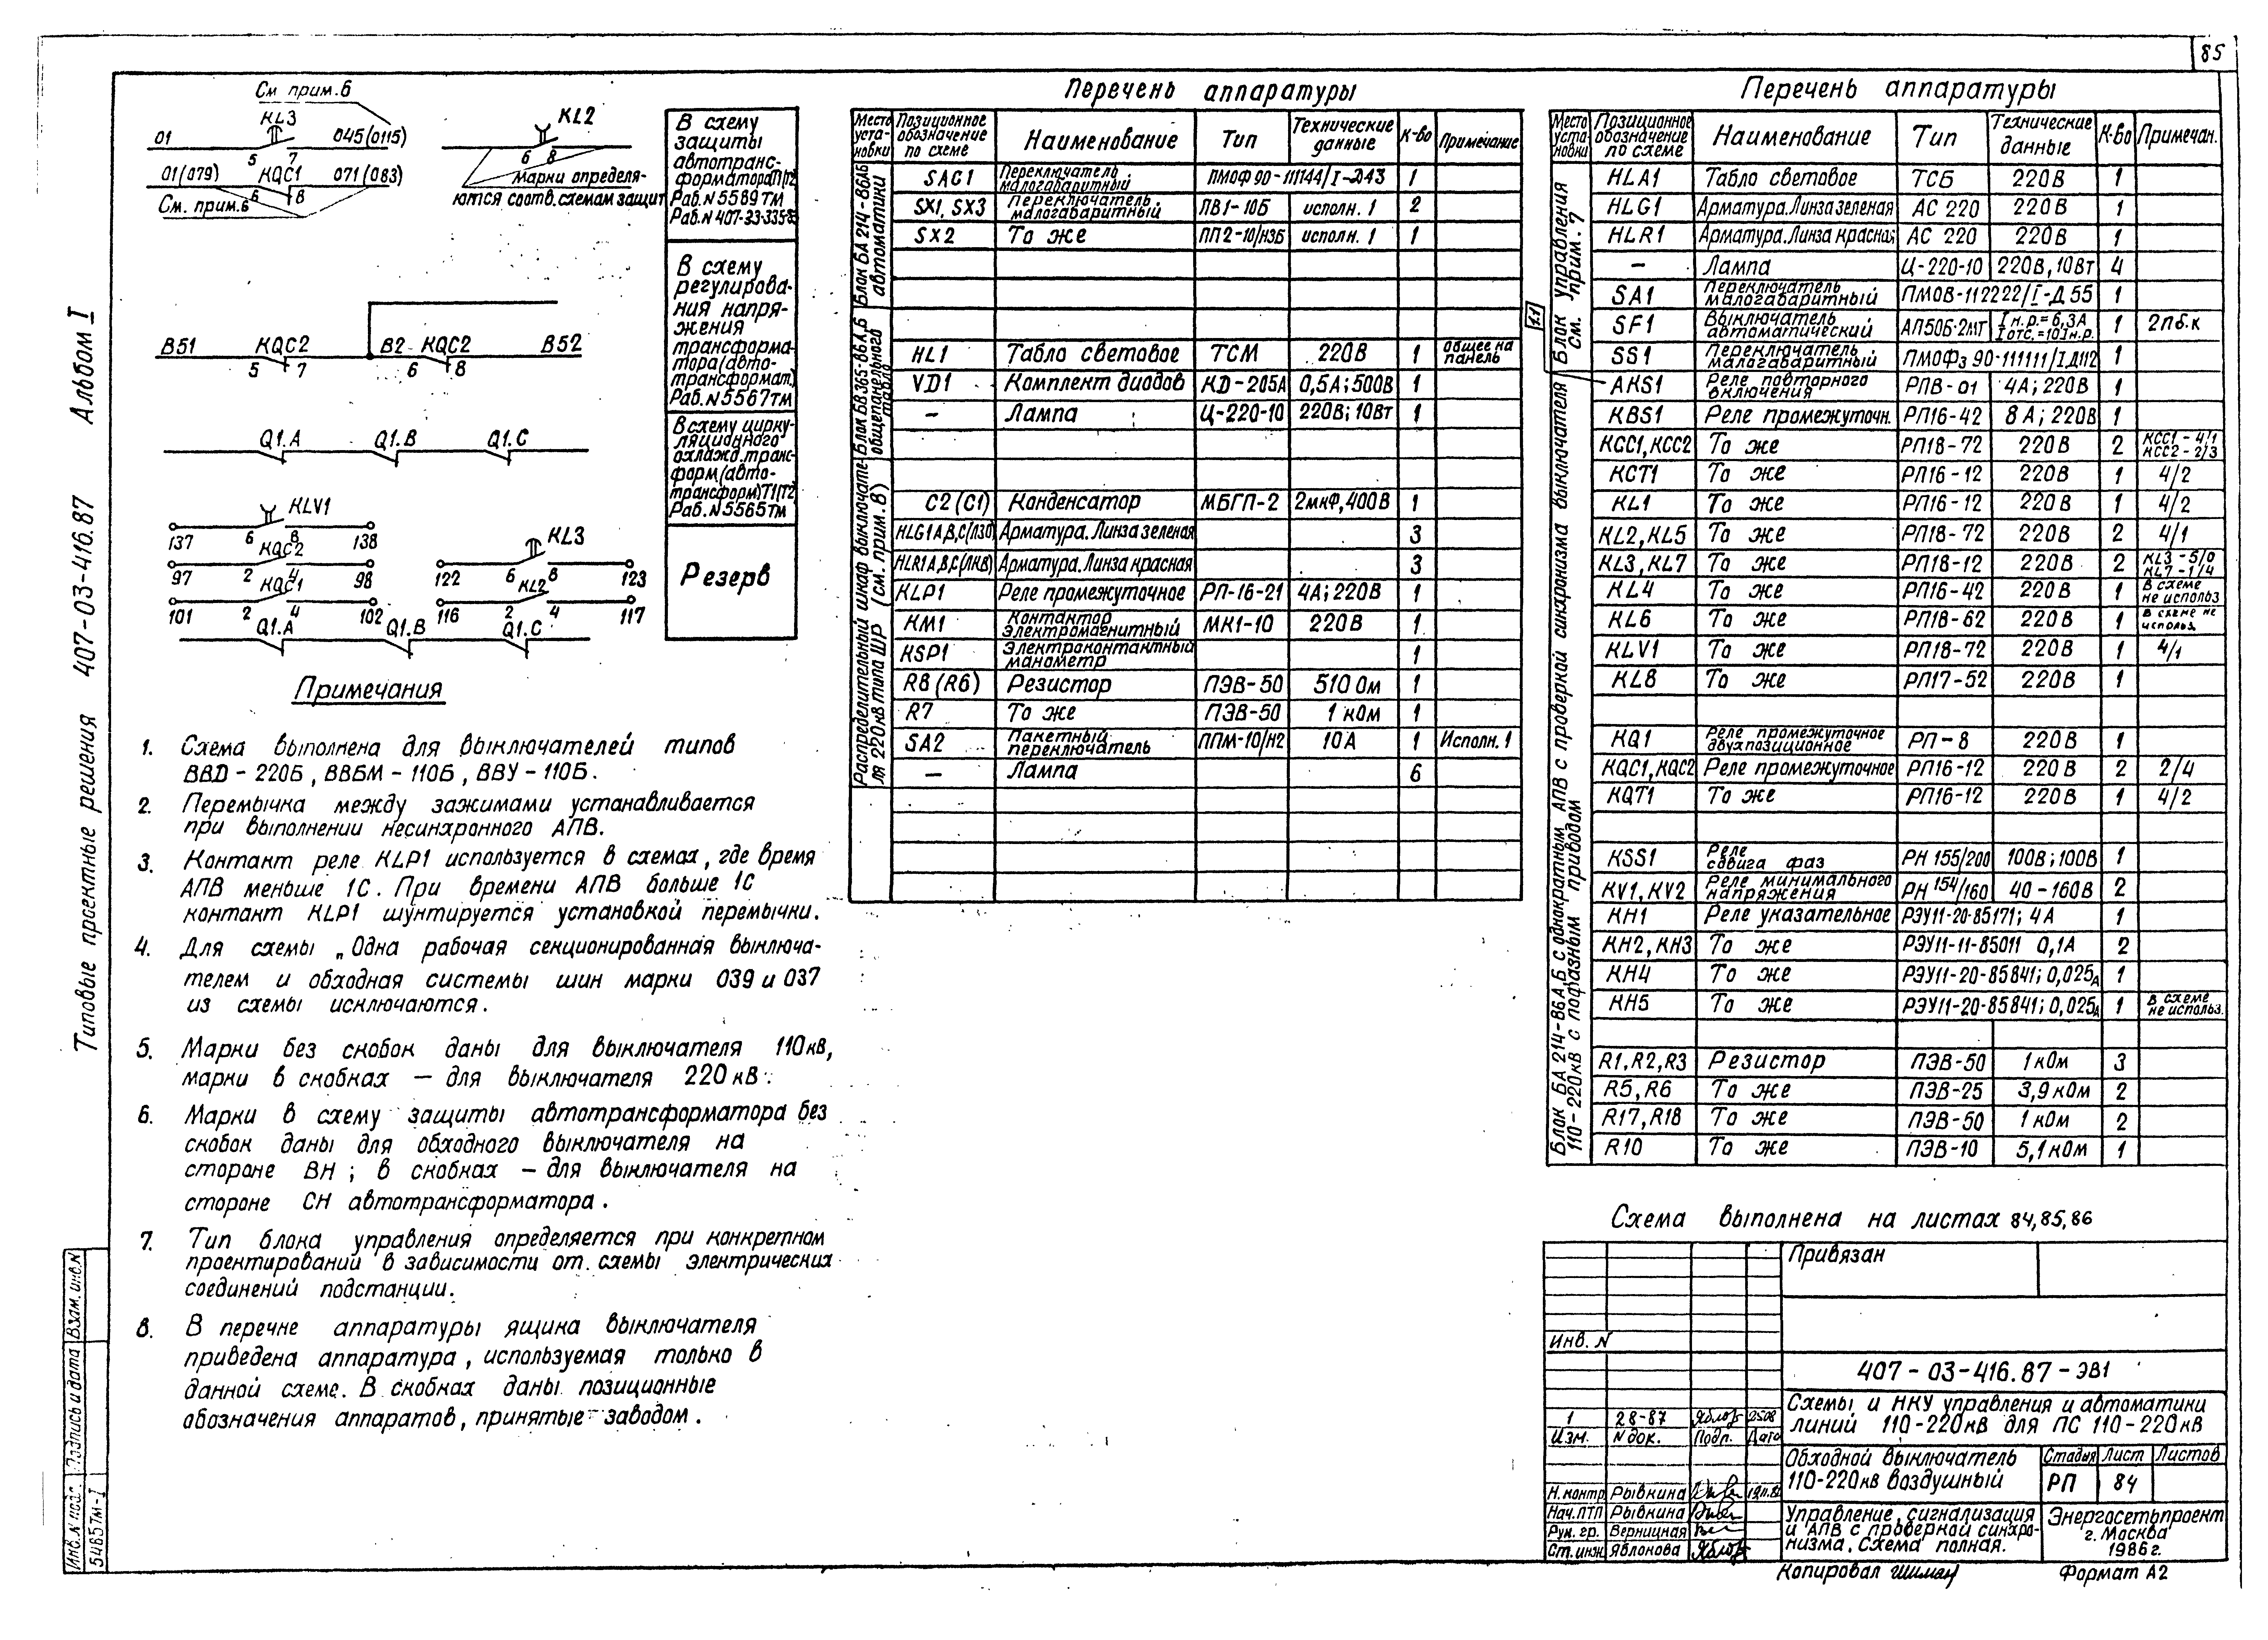 85
Типовые проектные решения 407-03-416.87 Альбом I
См. прим.6
01 KL3 045(0115)
5 7
KL2
6 8
01(079) KQC1 071(083)
6 8
См. прим.6
Марки определя-
ются соотв. схемам защит
В схему
защиты
автотранс-
форматора Т1(Т2)
Раб.N 5589ТМ
B51 KQC2 B2 KQC2 B52
5 7 6 8
В схему
регулирова-
ния напря-
жения
трансформа-
тора (авто-
трансформат.)
Раб.N5567тм
Q1.A Q1.B Q1.C
В схему цирку-
ляционного
охлажд. транс-
форм.(авто-
трансформ.)Т1(Т2)
Раб.N5565тм
KLV1
137 6 8 138
KQC2
97 2 4 98
KQC1
101 2 4 102
KL3
122 6 8 123
KL2
116 2 4 117
Q1.A Q1.B Q1.C
Резерв
Примечания
1. Схема выполнена для выключателей типов
ВВД-220Б, ВВБМ-110Б, ВВУ-110Б.
2. Перемычка между зажимами устанавливается
при выполнении несинхронного АПВ.
3. Контакт реле KLP1 используется в схемах, где время
АПВ меньше 1С. При времени АПВ больше 1С
контакт KLP1 шунтируется установкой перемычки.
4. Для схемы „Одна рабочая секционированная выключа-
телем и обходная системы шин марки 039 и 037
из схемы исключаются.
5. Марки без скобок даны для выключателя 110кв,
марки в скобках — для выключателя 220кв.
6. Марки в схему защиты автотрансформатора без
скобок даны для обходного выключателя на
стороне ВН; в скобках — для выключателя на
стороне СН автотрансформатора.
7. Тип блока управления определяется при конкретном
проектировании в зависимости от схемы электрических
соединений подстанции.
8. В перечне аппаратуры ящика выключателя
приведена аппаратура, используемая только в
данной схеме. В скобках даны позиционные
обозначения аппаратов, принятые заводом.
Перечень аппаратуры
Место уста-новки Позиционное обозначение по схеме Наименование Тип Технические данные К-во Примечание
Блок БА 214-86АБ автоматики
SAC1 Переключатель малогабаритный ПМОФ90-111144/I-Д43 1
SX1, SX3 Переключатель малогабаритный ПВ1-10Б исполн. 1 2
SX2 То же ПП2-10/Н3Б исполн. 1 1
Блок БВ 365-86А,Б общепанельного табло
HL1 Табло световое ТСМ 220В 1 общее на панель
VD1 Комплект диодов КД-205А 0,5А;500В 1
— Лампа Ц-220-10 220В;10Вт 1
Распределительный шкаф выключате-ля 220кв типа ШР (см. прим. 8)
C2(C1) Конденсатор МБГП-2 2мкФ,400В 1
HLG1A,B,C(ЛЗО) Арматура. Линза зеленая 3
HLR1A,B,C(ЛКВ) Арматура. Линза красная 3
KLP1 Реле промежуточное РП-16-21 4А;220В 1
KM1 Контактор электромагнитный МК1-10 220В 1
KSP1 Электроконтактный манометр 1
R8(R6) Резистор ПЭВ-50 510 Ом 1
R7 То же ПЭВ-50 1 кОм 1
SA2 Пакетный переключатель ППМ-10/Н2 10А 1 Исполн. 1
— Лампа 6
Перечень аппаратуры
Место установки Позиционное обозначение по схеме Наименование Тип Технические данные К-во Примечан.
Блок управления см. прим. 7
HLA1 Табло световое ТСБ 220В 1
HLG1 Арматура.Линза зеленая АС 220 220В 1
HLR1 Арматура.Линза красная АС 220 220В 1
— Лампа Ц-220-10 220В,10Вт 4
SA1 Переключатель малогабаритный ПМОВ-112222/I-Д55 1
SF1 Выключатель автоматический АП50Б-2МТ Iн.р.=6,3А Iотс.=10Iн.р. 1 2пб.к
SS1 Переключатель малогабаритный ПМОФз90-111111/IД112 1
1.1
Блок БА 214-86А,Б с однократным АПВ с проверкой синхронизма выключателя 110-220кв с пофазным приводом
AKS1 Реле повторного включения РПВ-01 4А;220В 1
KBS1 Реле промежуточн. РП16-42 8А;220В 1
KCC1,KCC2 То же РП18-72 220В 2 KCC1-4/1 KCC2-2/3
KCT1 То же РП16-12 220В 1 4/2
KL1 То же РП16-12 220В 1 4/2
KL2,KL5 То же РП18-72 220В 2 4/1
KL3,KL7 То же РП18-12 220В 2 KL3-5/0 KL7-1/4
KL4 То же РП16-42 220В 1 В схеме не использ
KL6 То же РП18-62 220В 1 в схеме не использ.
KLV1 То же РП18-72 220В 1 4/1
KL8 То же РП17-52 220В 1
KQ1 Реле промежуточное двухпозиционное РП-8 220В 1
KQC1,KQC2 Реле промежуточное РП16-12 220В 2 2/4
KQT1 То же РП16-12 220В 1 4/2
KSS1 Реле сдвига фаз РН 155/200 100В;100В 1
KV1,KV2 Реле минимального напряжения РН 154/160 40-160В 2
KH1 Реле указательное РЭУ11-20-85171; 4А 1
KH2,KH3 То же РЭУ11-11-85011 0,1А 2
KH4 То же РЭУ11-20-85841; 0,025А 1
KH5 То же РЭУ11-20-85841; 0,025А 1 в схеме не использ.
R1,R2,R3 Резистор ПЭВ-50 1кОм 3
R5,R6 То же ПЭВ-25 3,9кОм 2
R17,R18 То же ПЭВ-50 1кОм 2
R10 То же ПЭВ-10 5,1кОм 1
Схема выполнена на листах 84,85,86
Привязан
Инв. N
407-03-416.87-ЭВ1
Схемы и НКУ управления и автоматики
линий 110-220кВ для ПС 110-220кВ
1 28-87 2508
Изм. N док. Подп. Дата
Обходной выключатель
110-220кв воздушный
Стадия Лист Листов
РП 84
Н.контр Рывкина
Нач.ПТП Рывкина
Рук. гр. Верницкая
Ст.инж Яблокова
Управление, сигнализация
и АПВ с проверкой синхро-
низма. Схема полная.
Энергосетьпроект
г. Москва
1986г.
Копировал
Формат А2
Инв.N подл. Подпись и дата Взам. инв.N
5485тм-I